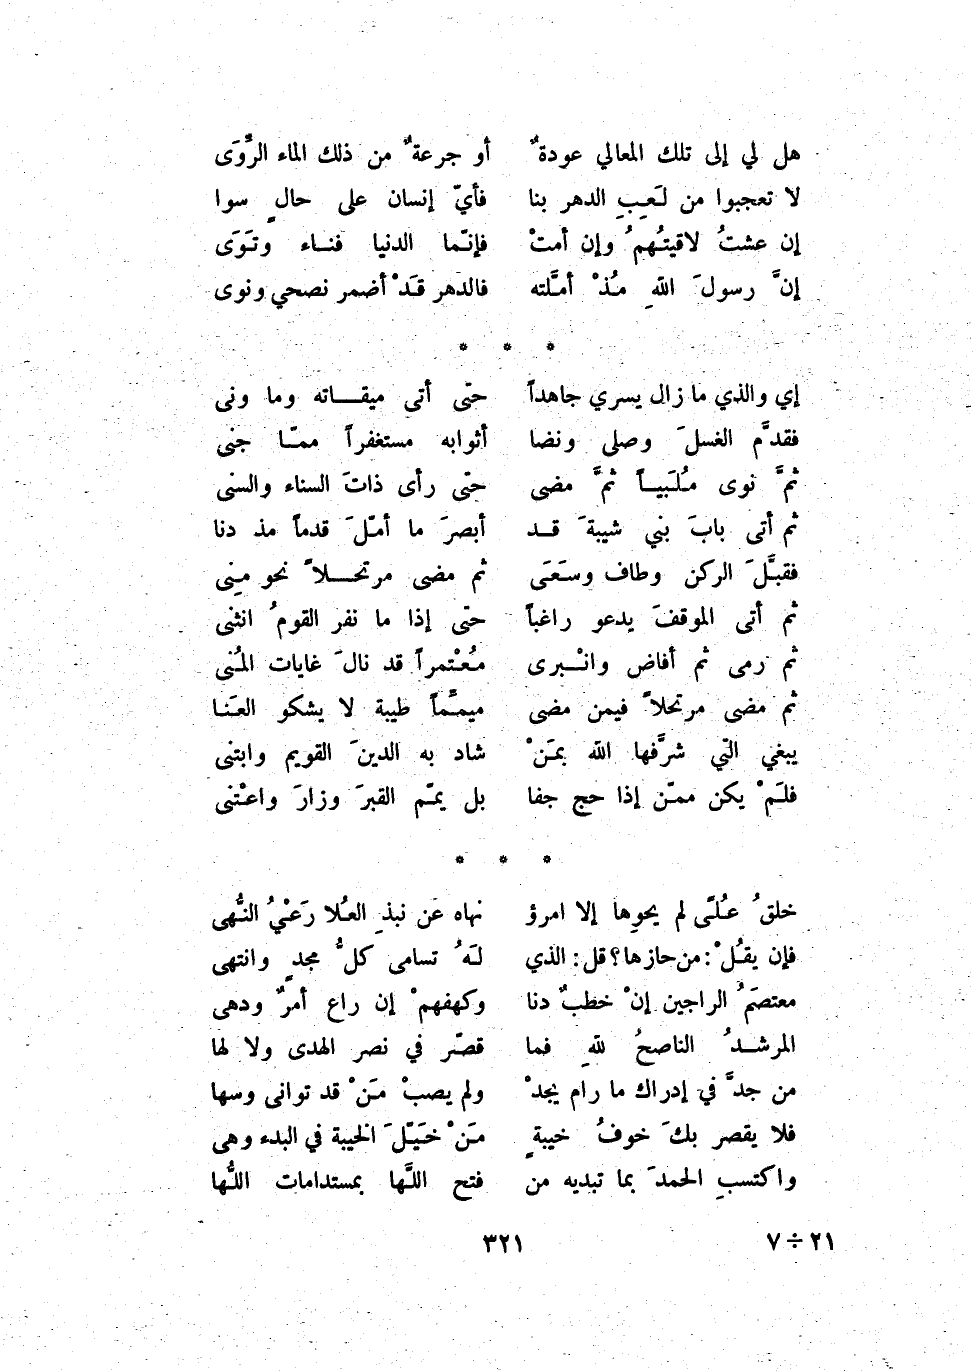 هل لي إلى تلك المعالي عودةٌ أو جرعةٌ من ذلك الماء الرِّوَى
لا تعجبوا من لَعِبِ الدهر بنا فأيّ إنسان على حالٍ سوا
إن عشتُ لاقيتُهمُ وإن أمتْ فإنّما الدنيا فناء وتَوَى
إنَّ رسولَ اللهِ مُذْ أمَّلته فالدهر قَدْ أضمر نصحي ونوى
* * *
إي والذي ما زال يسري جاهداً حتّى أتى ميقاته وما ونى
فقدَّم الغسلَ وصلى ونضا أثوابه مستغفراً ممّا جنى
ثمَّ نوى مُلَبياً ثمَّ مضى حتّى رأى ذاتَ السناء والسنى
ثم أتى بابَ بني شيبةَ قد أبصرَ ما أمّلَ قدماً مذ دنا
فقبَّلَ الركن وطاف وسَعَى ثم مضى مرتحلاً نحو مِنى
ثم أتى الموقفَ يدعو راغباً حتّى إذا ما نفر القومُ انثنى
ثم رمى ثم أفاض وانْبرى مُعْتمراً قد نالَ غايات المُنى
ثم مضى مرتحلاً فيمن مضى ميمَّماً طيبة لا يشكو العَنا
يبغي التّي شرَّفها الله بمَنْ شاد به الدينَ القويم وابتنى
فلَمْ يكن ممّن إذا حج جفا بل يمّم القبرَ وزارَ واعْتنى
* * *
خلقُ عُلَّى لم يحوِها إلا امرؤ نهاه عَن نبذِ العُلا رَعْيُ النُّهى
فإن يقُلْ: من حازها؟ قل: الذي لَهُ تسامى كلُّ مجدٍ وانتهى
معتصَمُ الراجين إنْ خطبٌ دنا وكهفهمْ إن راع أمرٌ ودهى
المرشدُ الناصحُ للهِ فما قصّر في نصر الهدى ولا لها
من جدَّ في إدراك ما رام يجدْ ولم يصبْ مَنْ قد توانى وسها
فلا يقصر بكَ خوفُ خيبةٍ مَنْ خيَّلَ الخيبة في البدء وهى
واكتسبِ الحمدَ بما تبديه من فتح اللَّها بمستدامات اللُّها
٣٢١
٢١ ÷ ٧